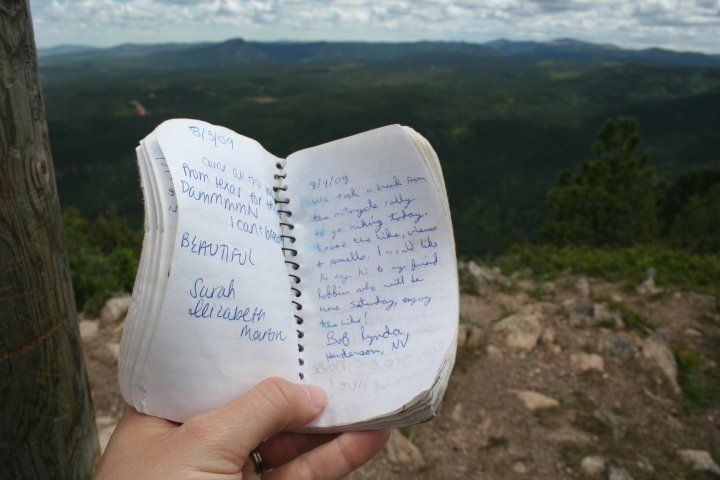 8/3/09
came all the
from texas for th
Dammmmn
i cant bre
BEAUTIFUL
Sarah
Elizabeth
Martin
8/4/09
We took a break from
the motorcycle rally
to go hiking today.
the hike, views
+ smells. I would like
to say hi to my friend
Robbin who will be
here Saturday, enjoy
the hike!
Bob Lynda,
Henderson, NV